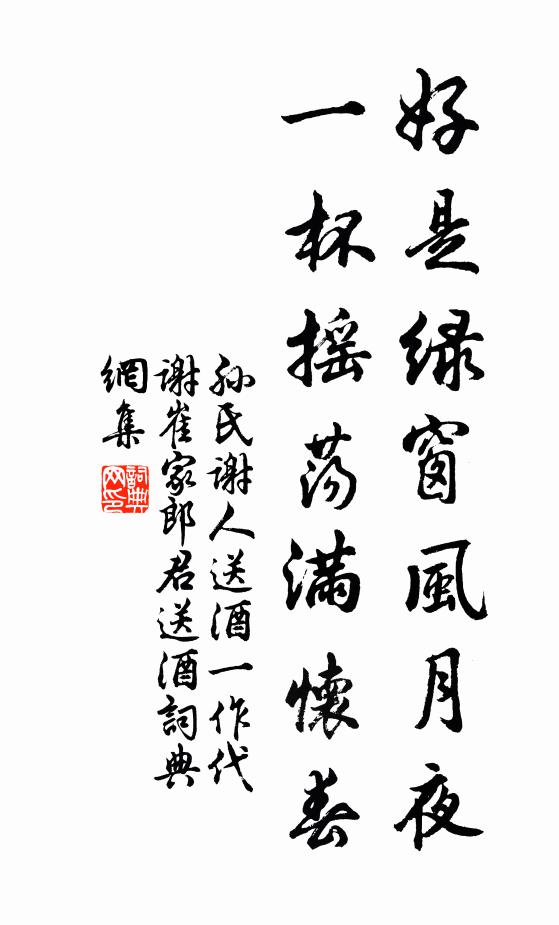 好是緑窗風月夜
一杯搖蕩滿懷春
孫氏謝人送酒一作代
謝崔家郎君送酒詞典
網集
詞典網印